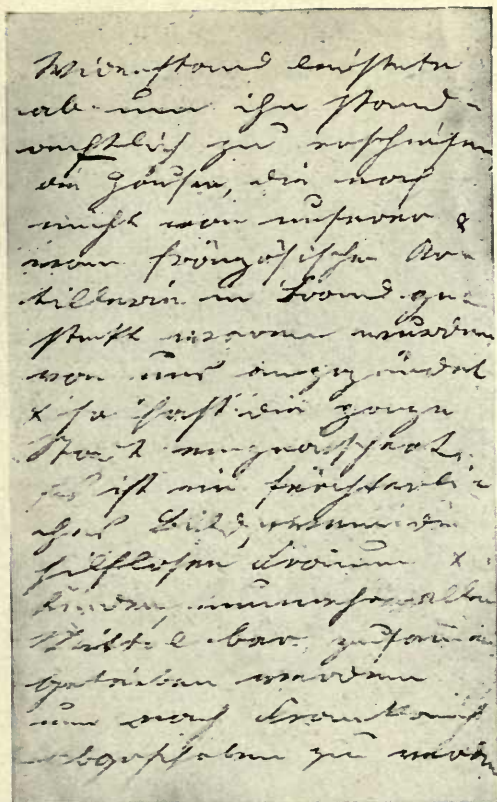 Widerstand leistete
ab um ihn stand-
rechtlich zu erschießen,
die Häuser, die noch
nicht von unserer &
von französischer Ar-
tillerie in Brand ge
steckt waren wurden
von uns angezündet
& so fast die ganze
Stadt eingeäschert.
Es ist ein fürchterli-
ches Bild, wenn die
hilflosen Frauen &
Kinder nunmehr allen
Mittel bar, zusammen
getrieben werden
um nach Frankreich
abgeschoben zu werden